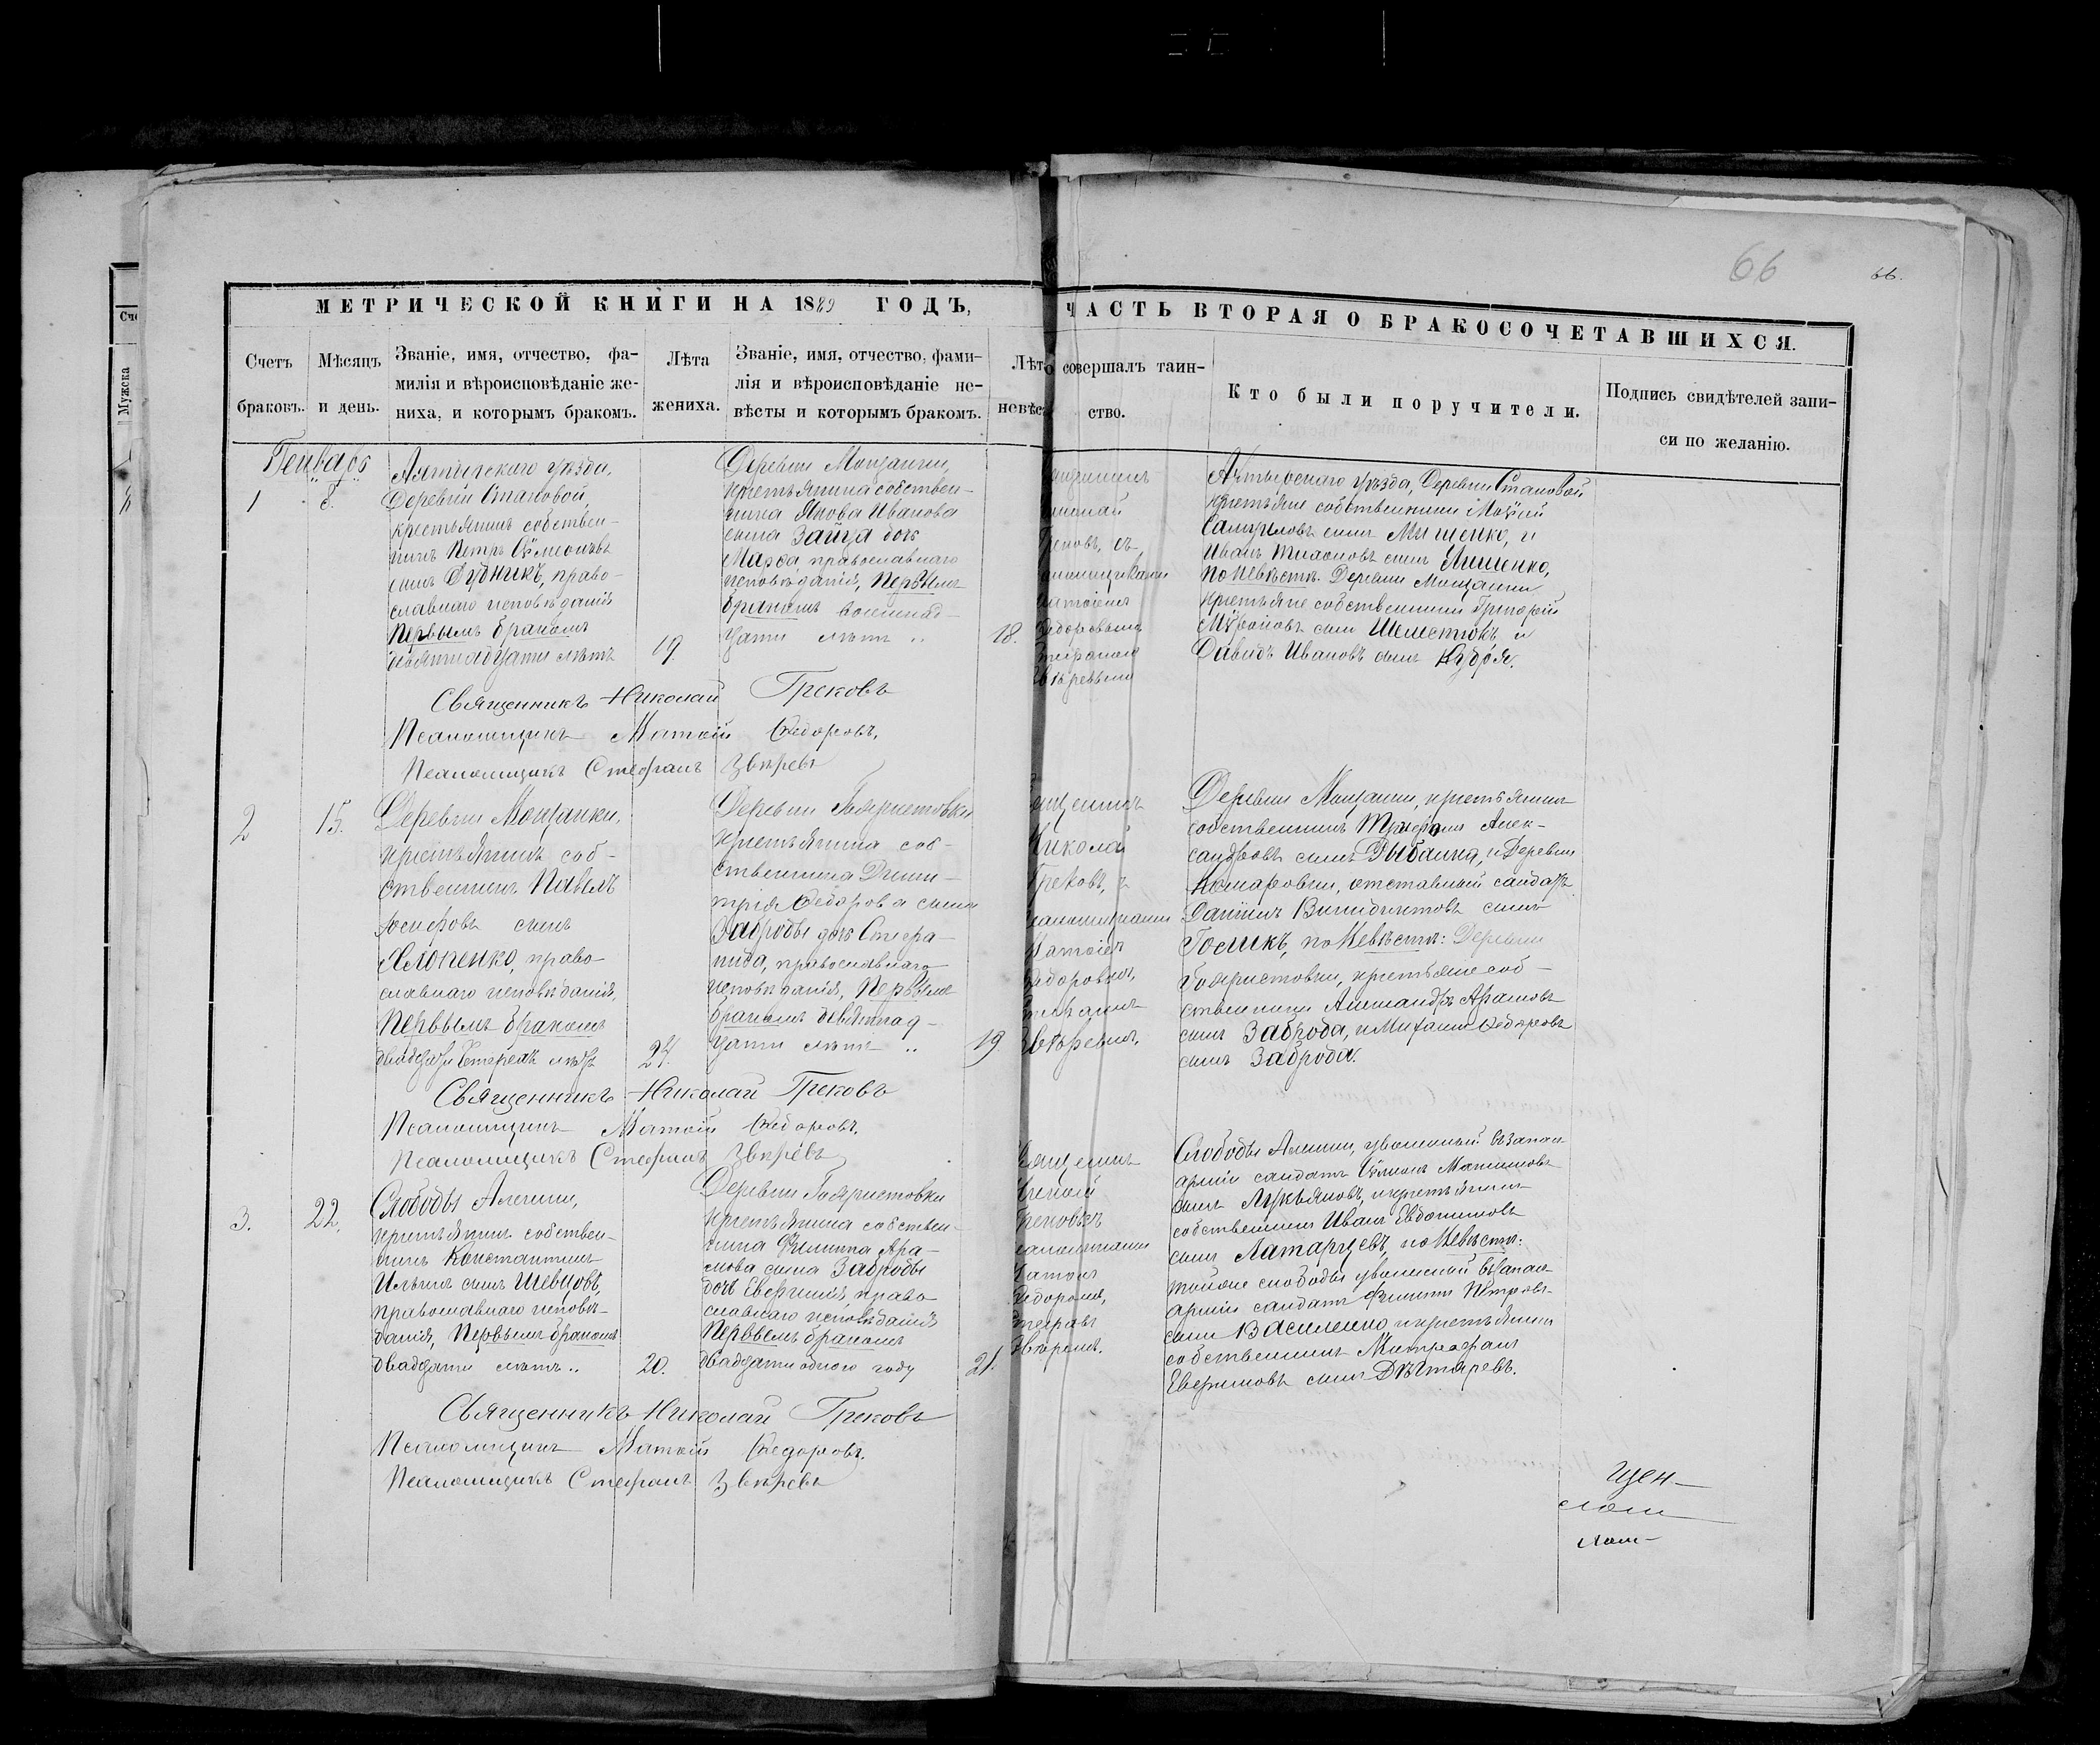 66
66.
МЕТРИЧЕСКОЙ КНИГИ НА 1889 ГОДЪ,
ЧАСТЬ ВТОРАЯ О БРАКОСОЧЕТАВШИХСЯ.
Счетъ
браковъ.
Мѣсяцъ
и день.
Званіе, имя, отчество, фа-
милія и вѣроисповѣданіе же-
ниха, и которымъ бракомъ.
Лѣта
жениха.
Званіе, имя, отчество, фами-
лія и вѣроисповѣданіе не-
вѣсты и которымъ бракомъ.
Лѣт
невѣс
о совершалъ таин-
ство.
Кто были поручители.
Подпись свидѣтелей запи-
си по желанію.
Генварь
1
8.
Ахтырскаго уѣзда,
Деревни Становой,
крестьянинъ собствен-
никъ Петръ Сѵмеоновъ
сынъ Дудникъ, право-
славнаго исповѣданія
первымъ бракомъ
девятнадцати лѣтъ
19.
Деревни Мощанки,
крестьянина собствен-
ника Якова Иванова
сына Зайца дочь
Марѳа, православнаго
исповѣданія, первымъ
бракомъ восемнад-
цати лѣтъ „
18.
Николай
Грековъ, съ
Ѳедоровымъ
Звѣревымъ
Ахтырскаго уѣзда, Деревни Становой
крестьяне собственники Моѵсей
Самуиловъ сынъ Мищенко, и
Иванъ сынъ Мищенко,
по невѣстѣ: Деревни Мощанки
крестьяне собственники Григорій
сынъ Шелестюкъ и
Давидъ Ивановъ сынъ Кудря.
Священникъ Николай Грековъ
Псаломщикъ Матѳій Ѳедоровъ.
Псаломщикъ Стефанъ Звѣревъ
2
15.
Деревни Мощанки,
крестьянинъ соб-
ственникъ Павелъ
Іосифовъ сынъ
право-
славнаго исповѣданія,
первымъ бракомъ
двадцати четырехъ лѣтъ
24.
Деревни Бояристовки
крестьянина соб-
ственника Дими-
трія Ѳедорова сына
Заброды дочь Стефа-
нида, православнаго
исповѣданія, первымъ
бракомъ девятнад-
цати лѣтъ „
19
Николай
Грековъ, съ
Ѳедоровымъ,
Звѣревымъ.
Деревни Мощанки, крестьянинъ
собственникъ Трифонъ Алек-
сандровъ сынъ Рыбалка, и Деревни
Комаровки, отставный солдатъ
Даніилъ сынъ
Голикъ, по невѣстѣ: Деревни
Бояристовки, крестьяне соб-
ственники Александръ
сынъ Заброда, и Ѳедоровъ
сынъ Заброда.
Священникъ Николай Грековъ
Псаломщикъ Матѳій Ѳедоровъ.
Псаломщикъ Стефанъ Звѣревъ
3.
22.
Слободы Алешни,
крестьянинъ собствен-
никъ Константинъ
Ильинъ сынъ Шевцовъ,
православнаго исповѣ-
данія, первымъ бракомъ
двадцати лѣтъ „
20.
Деревни Бояристовки
крестьянина собствен-
ника Филиппа
сына Заброды
дочь Евфимія право-
славнаго исповѣданія
первымъ бракомъ
двадцати одного году
21.
Слободы Алешни, уволенный въ запас
арміи солдатъ Сѵмеонъ Максимовъ
сынъ Лукьяновъ, и крестьянинъ
собственникъ Иванъ Евдокимовъ
сынъ Латарцевъ, по невѣстѣ:
тойже слободы уволенный въ запас
арміи солдатъ Филиппъ Петровъ
сынъ Василенко и крестьянинъ
собственникъ Митрофанъ
Евфимовъ сынъ Дѣхтяревъ.
Священникъ Николай Грековъ
Псаломщикъ Матѳій Ѳедоровъ.
Псаломщикъ Стефанъ Звѣревъ